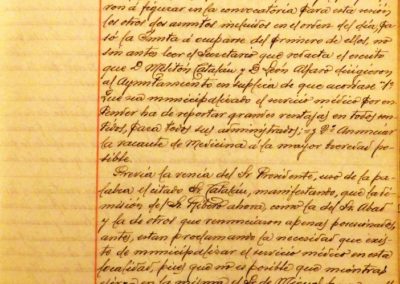 ron á figurar en la convocatoria para esta sesión,
los otros dos asuntos incluidos en el orden del día, pa-
só la Junta á ocuparse del primero de ellos, no
sin antes leer el Secretario que redacta el escrito
que D. Melitón Catalán y D. León Alfaro dirigieron
al Ayuntamiento en suplica de que acordase 1º
Que sea municipalizado el servicio médico por en-
tender ha de reportar grandes ventajas en todos sen-
tidos, para todos sus administrados; y 2º Anunciar
la vacante de Medicina á la mayor brevedad po-
sible.
Previa la venia del Sr. Presidente, uso de la pa-
labra el citado Sr. Catalán, manifestando, que la di-
misión del Sr. Ribero ahora, como la del Sr. Abad
y la de otros que renunciaron apenas posesionados
antes, estan proclamando la necesidad que exis-
te de municipalizar el servicio médico en esta
localidad, pues que no es posible que mientras
en la misma el Sr. de Miguel